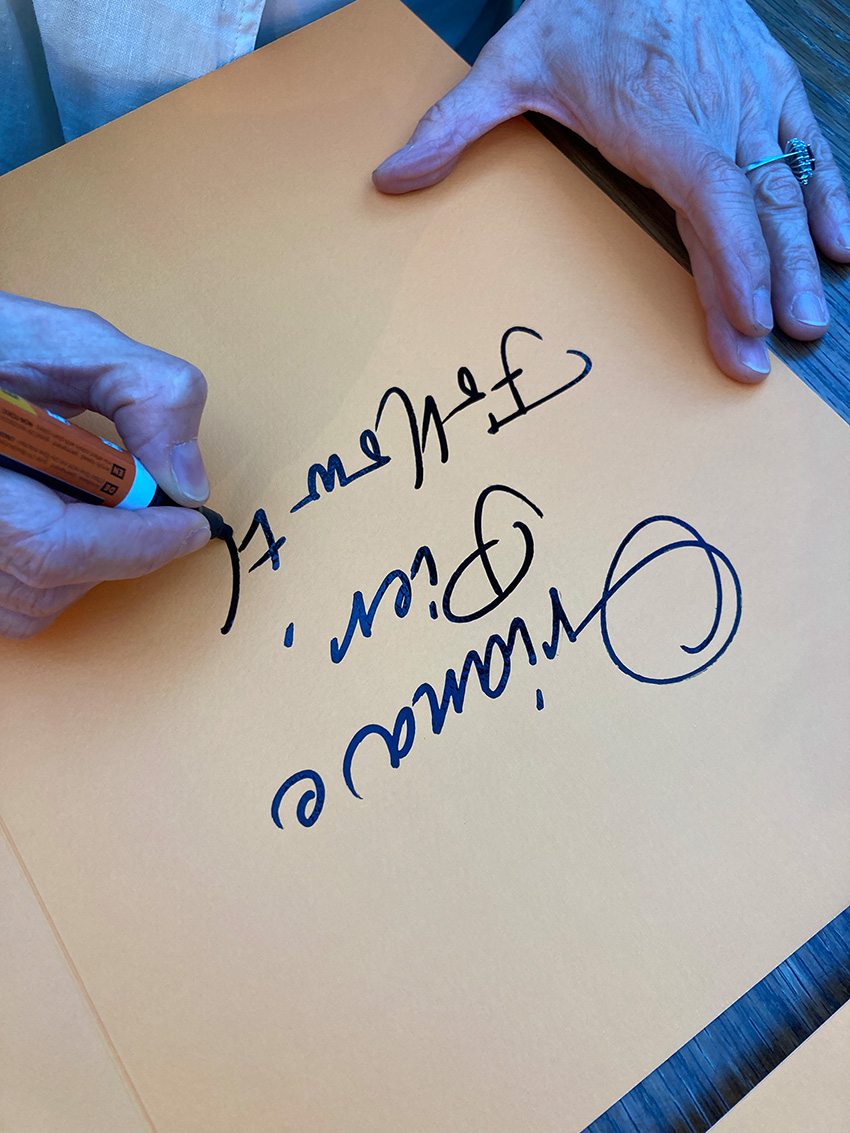 Oriana e
Pier,
Follow t